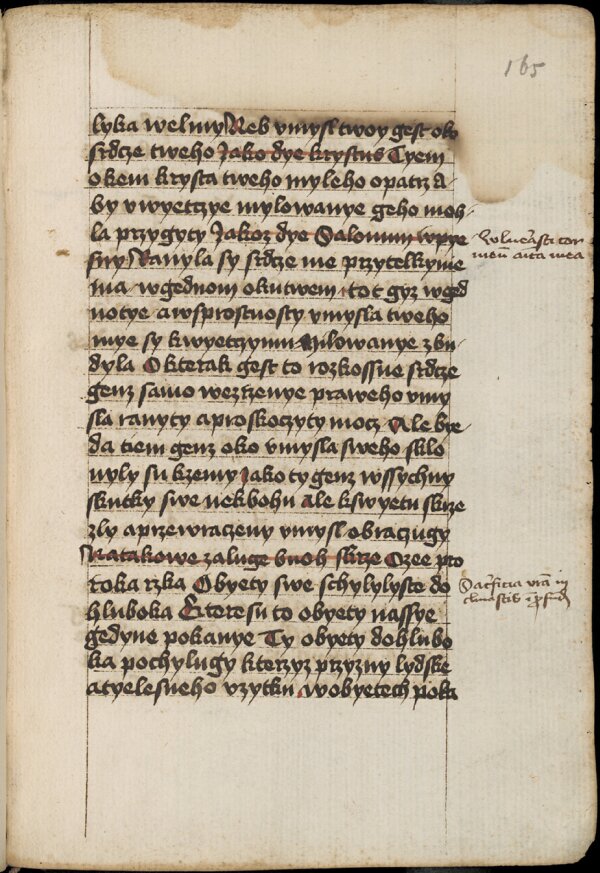 165
lyka welmy Neb vmysl twoy gest oko
srdcze tweho Jako dye krystus Tyem
okem krysta tweho myleho opatrz A
by v wyetczye mylowanye geho moh
la przygyty Jakoz dye Salomun wpye
sny Ranyla sy srdcze me przytelkynie
ma wgednom oku twem tot gyz wged
notye a wsprostnosty vmysla tweho
mye sy kwyetczymu mylowanye zbu
dyla O kterak gest to rozkossne srdcze
genz samo wezrzenye praweho vmy
sla ranyty a proskoczyty mocz Ale bye
da tiem genz oko vmysla sweho sklo
nyly su kzemy Jako ty genz wssychny
skutky swe nek bohu Ale kswyetu skrze
zly a przewraczeny vmysl obraczugy
Na takowe zaluge buoh skrze Ozee pro
roka rzka Obyety swe schylylyste do
hluboka Ktere su to obyety nassye
gedyne pokanye Ty obyety do hlubo
ka pochylugy kterzyz przyzny lydske
a tyelesneho vzytku w obyetech poka
Vulnerasti cor
meu
mea
Sacrificia